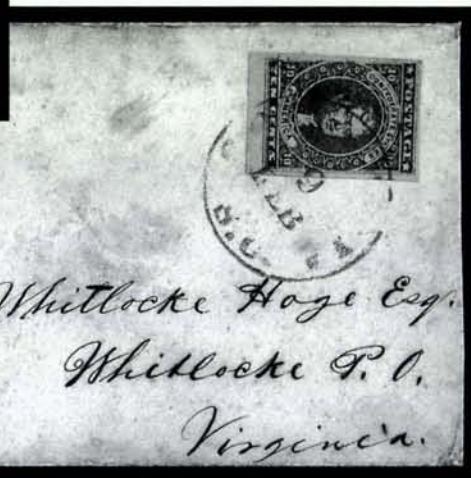 POSTAGE
9
FEB
Whitlocke Hoge Esq.
Whitlocke P. O.
Virginia.